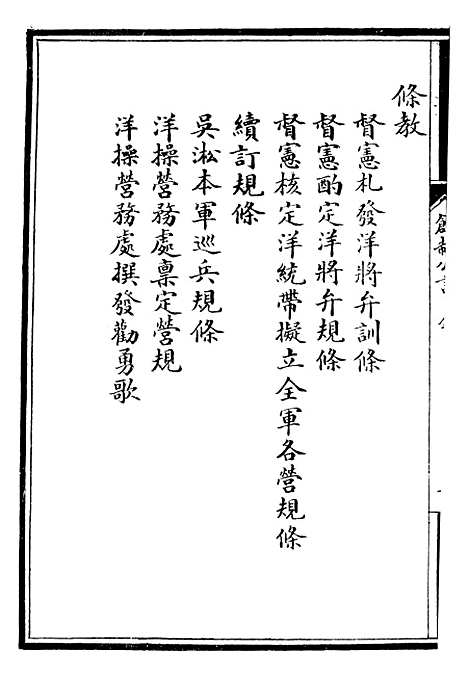 條教
督憲札發洋將弁訓條
督憲酌定洋將弁規條
督憲核定洋統帶擬立全軍各營規條
續訂規條
吳淞本軍巡兵規條
洋操營務處稟定營規
洋操營務處撰發勸勇歌